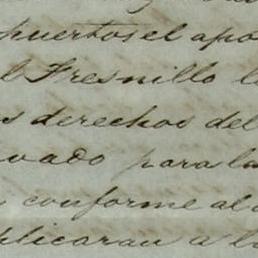 puertos el apo
l Fresnillo l
s derechos del
vado para la
conforme al
plicaran a l